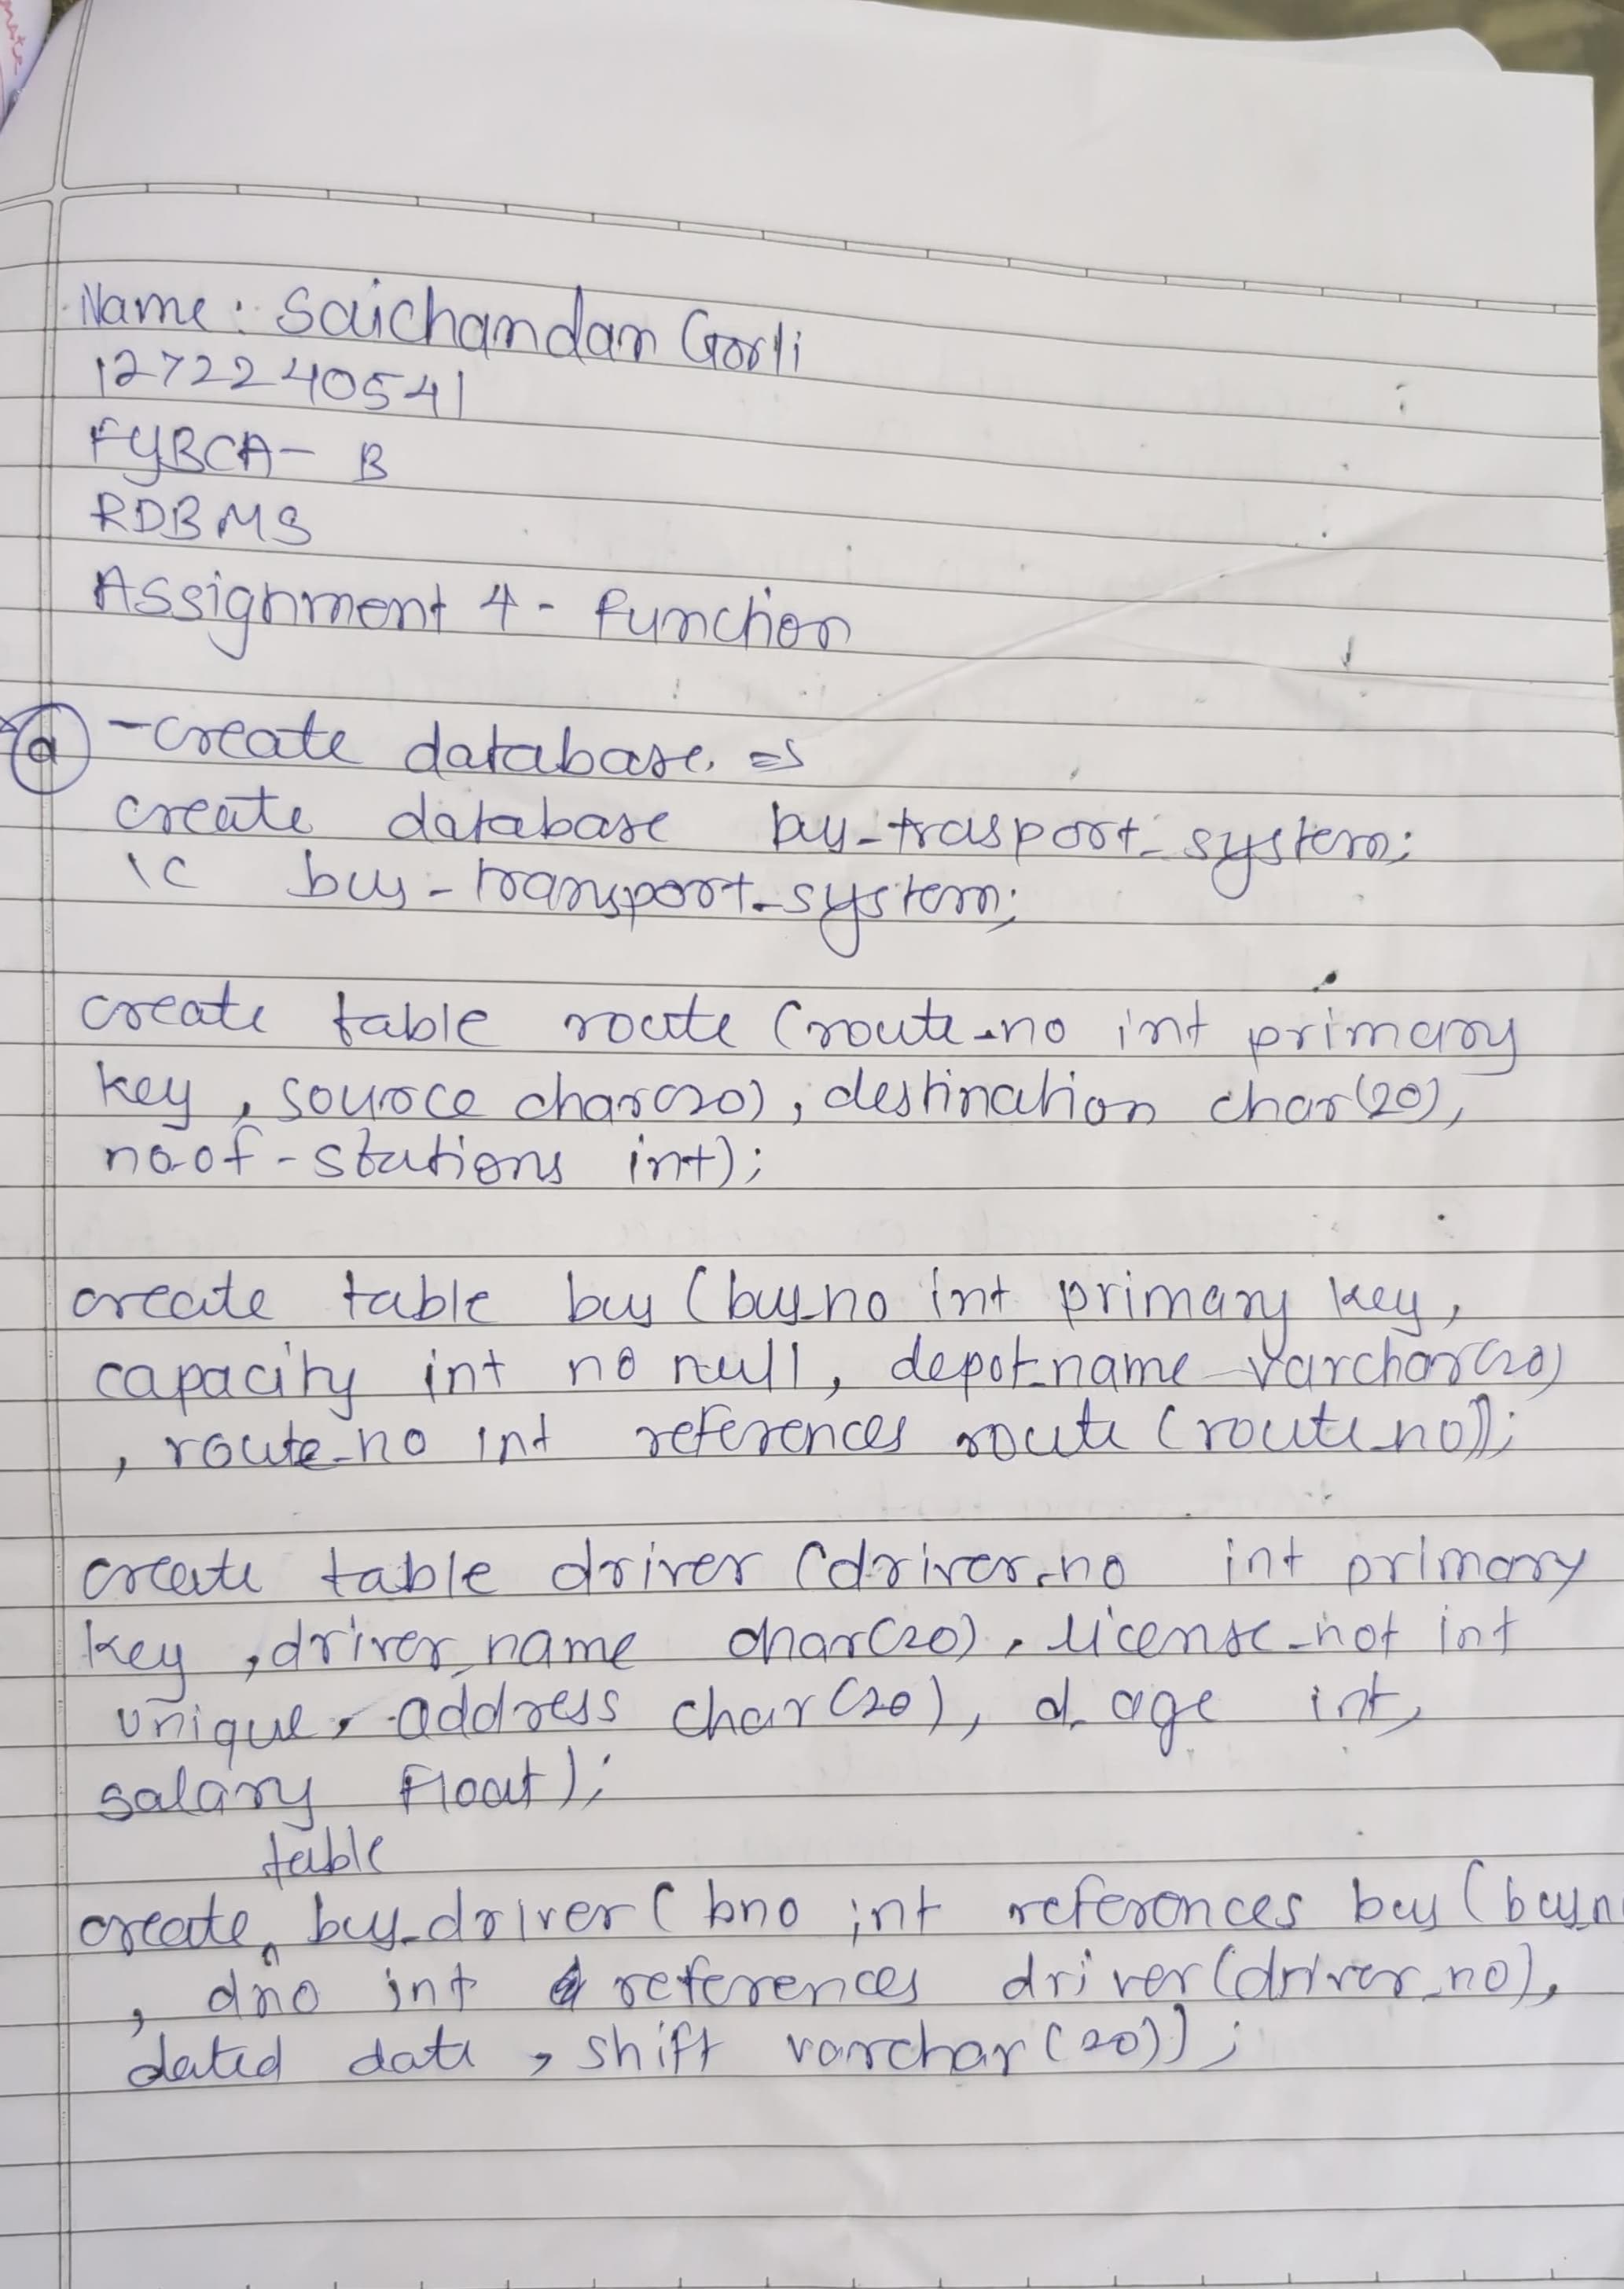 Name: Saichandan Gorli
1272240541
FYBCA- B
RDBMS
Assignment 4 - Function
a -create database. =>
create database bus_trasport_system;
\c bus-transport_system;
create table route (route_no int primary
key, source char(20), destination char(20),
no-of-stations int);
create table bus (bus_no int primary key,
capacity int no null, depot_name varchar(20)
, route_no int references route (route_no));
create table driver (driver_no int primary
key, driver_name char(20), license_not int
unique, address char(20), d_age int,
salary Float);
table
create bus_driver ( bno int references bus (bus_n
, dno int references driver(driver_no),
dated date, shift varchar(20));